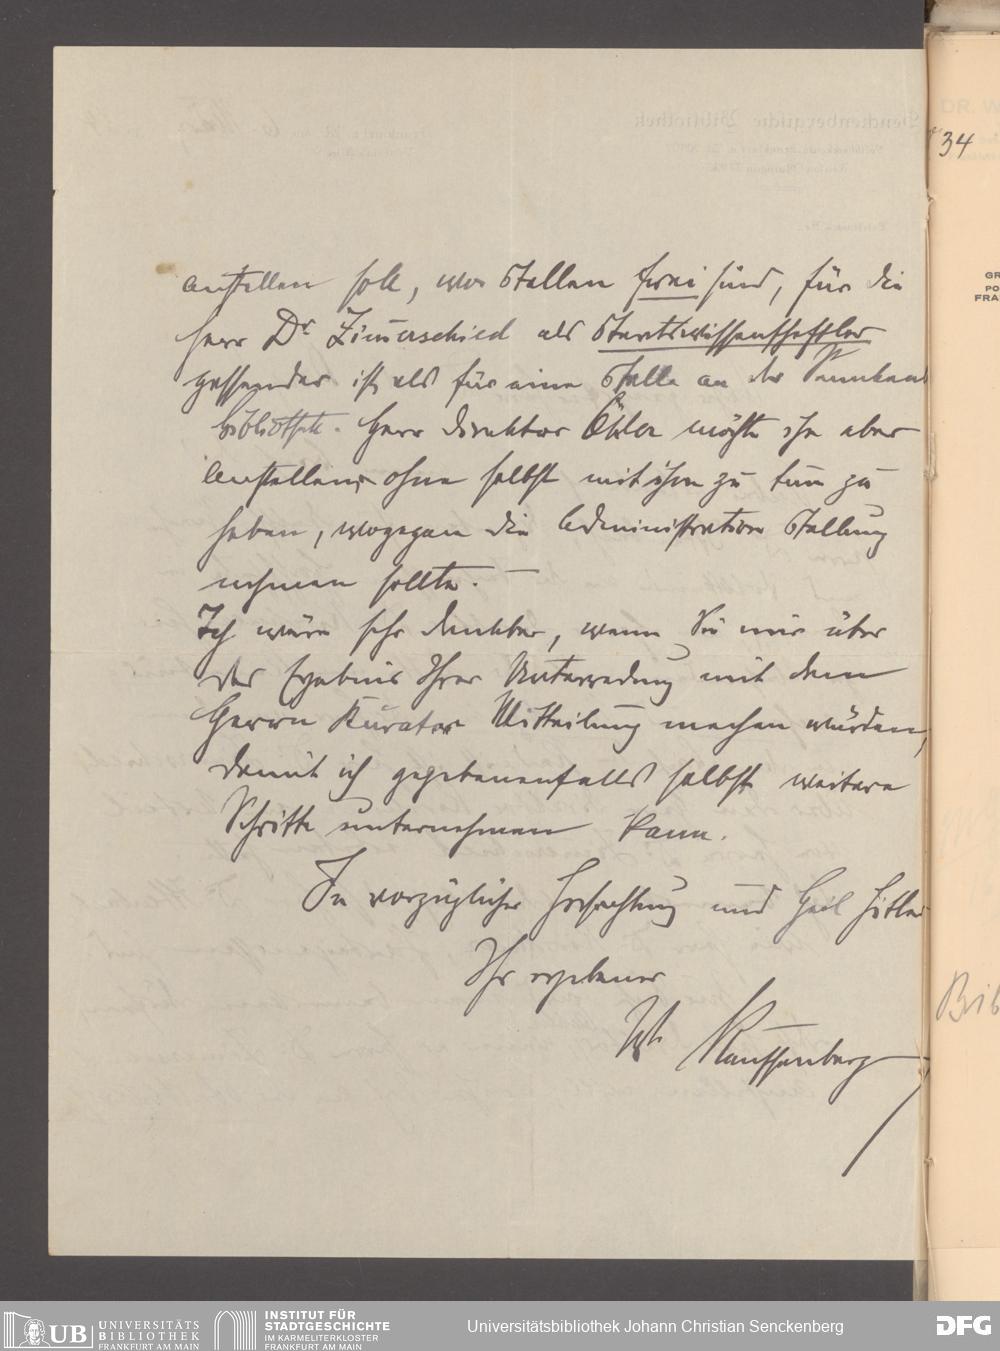 34
anstellen soll, wo Stellen frei sind, für die
Herr Dr Zimerschied als Staatswissenschaftler
passender ist als für eine Stelle an der
bibliothek. Herr Direktor Öhler möchte ihn aber
anstellen, ohne selbst mit ihm zu tun zu
haben, wogegen die Administration Stellung
nehmen sollte. —
Ich wäre sehr dankbar, wenn Sie mir über
das Ergebnis Ihrer Unterredung mit dem
Herrn Kurator Mitteilung machen würden,
damit ich gegebenenfalls selbst weitere
Schritte unternehmen kann.
In vorzüglicher Hochachtung und Heil Hitler
Ihr ergebener
W. Rauschenberger
DR. W
GR
PO
FRA
Bib
UB UNIVERSITÄTS
BIBLIOTHEK
FRANKFURT AM MAIN
INSTITUT FÜR
STADTGESCHICHTE
IM KARMELITERKLOSTER
FRANKFURT AM MAIN
Universitätsbibliothek Johann Christian Senckenberg
DFG